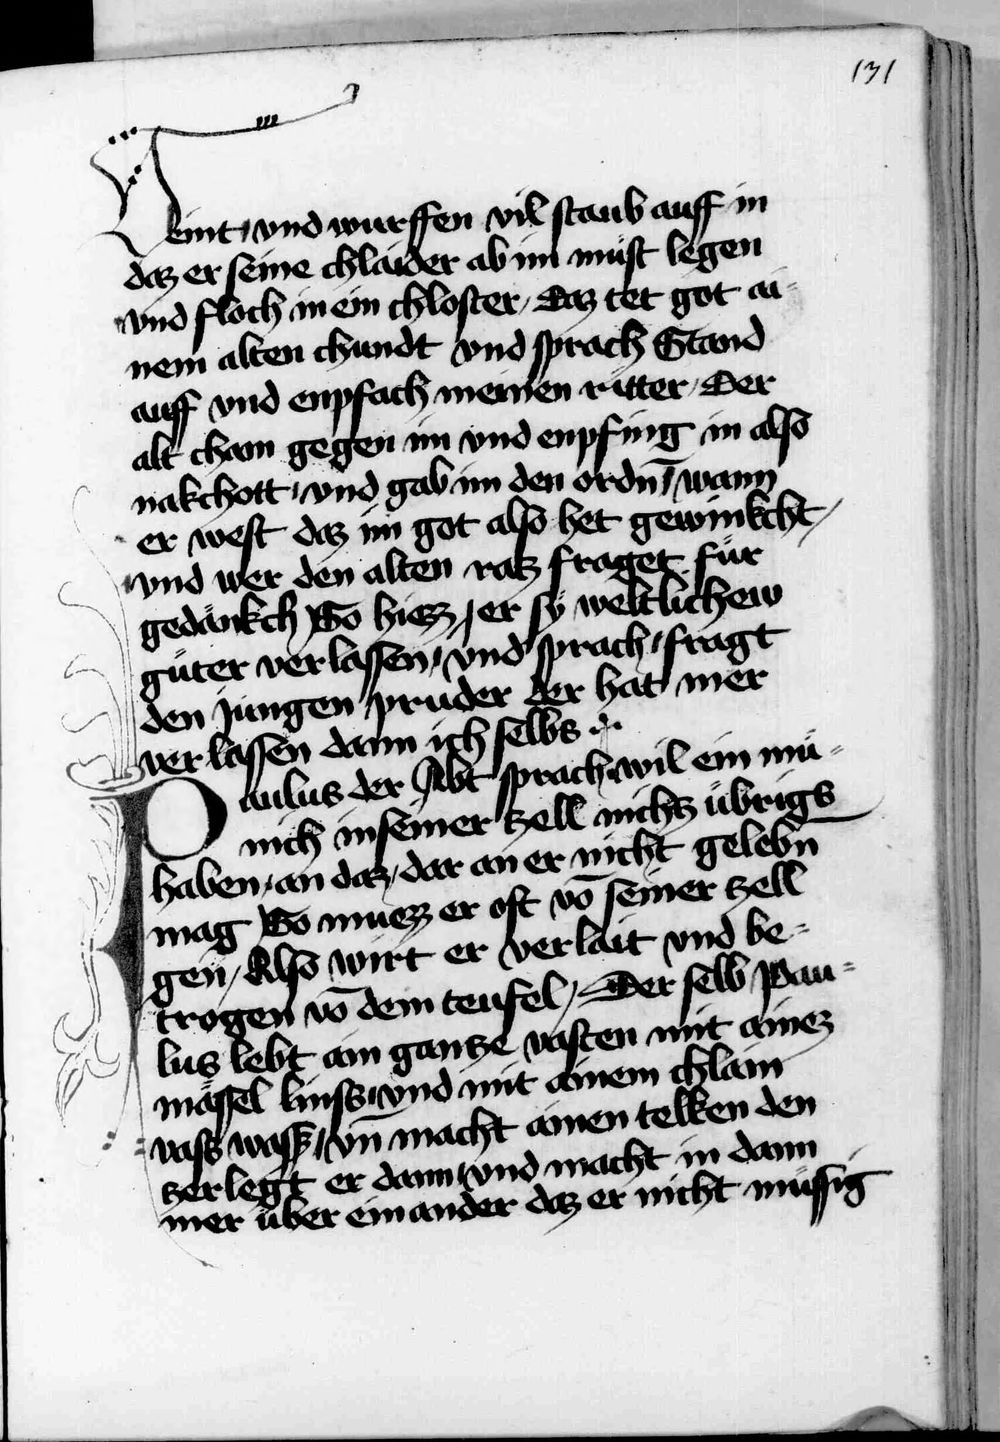 131
veint / vnd wurffen vil staub auff in
daz er seine chlaider ab im muͤst legen
vnd floch in ein chloster / Daz tet got ai-
nem alten chundt vnd sprach Stand
auff vnd enpfach meinen ritter / Der
alt cham gegen im vnd enpfing in also
nakchott / vnd gab im den ordn̄ / wann
er west daz im got also het gewinkcht /
vnd wer den alten ratz fraget fuͤr
gedaͤnkch So hiezz / er sÿ weltlichew
guͤter verlassen / vnd sprach / fragt
den jungen pruder der hat mer
verlassen dann ich selbs
Paulus der Abt sprach wil ein muͤ-
nich in seiner zell nichtz uͤbrigs
haben / an daz / dar an er nicht gelebn̄
mag So muezz er oft vō seiner zell
gen / Also wirt er verlait vnd be-
trogen vō dem teufel / Der selb Pau-
lus lebt ain gantze vasten mit ainez
maͤssel lins / vnd mit ainem chlain
vass wass / vn̄ macht ainen telken den
zerlegt er dann / vnd macht in dann
mer uͤber einander daz er nicht muͤssig